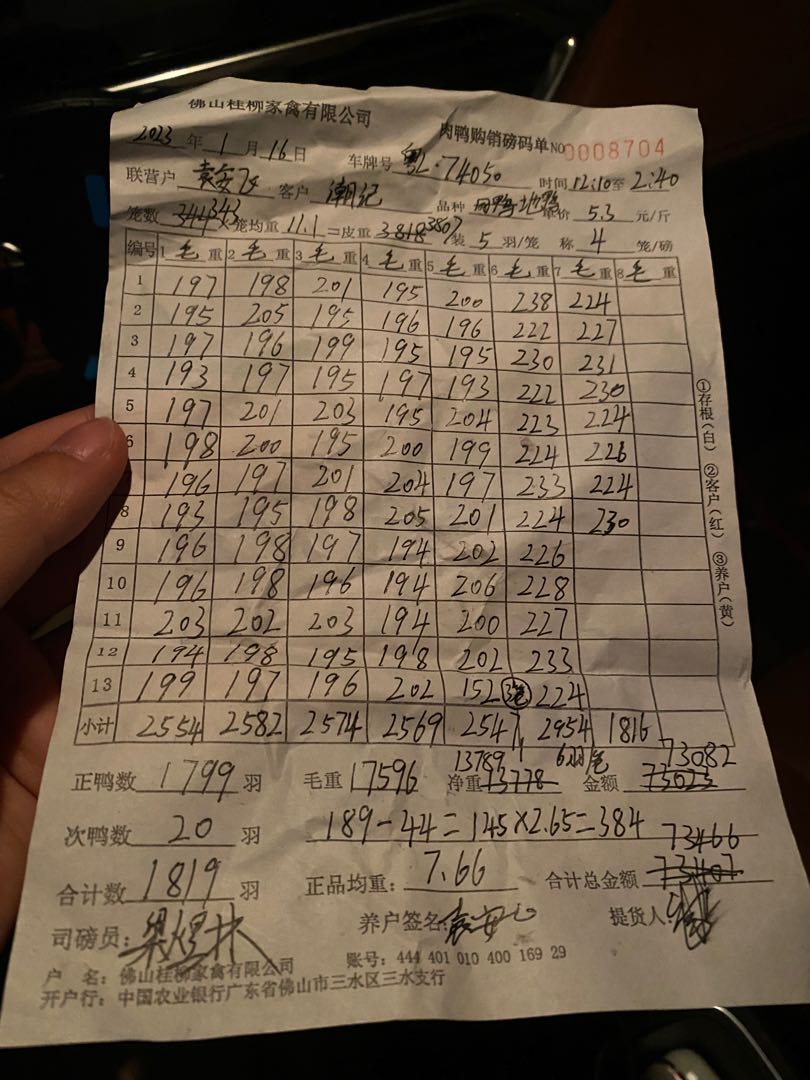 佛山桂柳家禽有限公司
肉鸭购销磅码单 NO 0008704
2023 年 1 月 16 日 车牌号 粤L:74050 时间 12:10 至 2:40
联营户 客户 潮记 品种 单价 5.3 元/斤
笼数 344 343 × 笼均重 11.1 =皮重 3818 3807 装 5 羽/笼 称 4 笼/磅
编号 1 毛 重 2 毛 重 3 毛 重 4 毛 重 5 毛 重 6 毛 重 7 毛 重 8 毛 重
1 197 198 201 195 200 238 224
2 195 205 195 196 196 222 227
3 197 196 199 195 195 230 231
4 193 197 195 197 193 222 230
5 197 201 203 195 204 223 224
6 198 200 195 200 199 224 226
196 197 201 204 197 233 224
8 193 195 198 205 201 224 230
9 196 198 197 194 202 226
10 196 198 196 194 206 228
11 203 202 203 194 200 227
12 194 198 195 198 202 233
13 199 197 196 202 152 224
小计 2554 2582 2574 2569 2547 2954 1816
13789 6羽 73082
正鸭数 1799 羽 毛重 17596 净重 13778 金额 73023
次鸭数 20 羽 189-44=145×2.65=384 73466
合计数 1819 羽 正品均重: 7.66 合计总金额 73407
司磅员: 养户签名: 提货人:
户 名: 佛山桂柳家禽有限公司 账号: 444 401 010 400 169 29
开户行: 中国农业银行广东省佛山市三水区三水支行
①存根(白) ②客户(红) ③养户(黄)